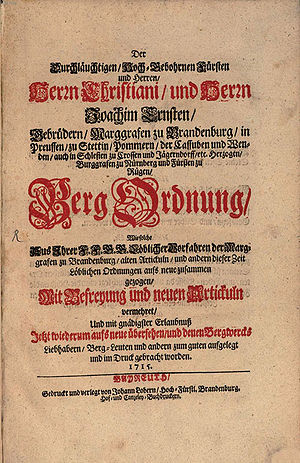 Der
Durchläuchtigen/ Hoch-Gebohrnen Fürsten
und Herren/
Herrn Christiani/ und Herrn
Joachim Ernsten/
Gebrüdern/ Marggrafen zu Brandenburg/ in
Preussen/ zu Stettin/ Pommern/ der Cassuben und Wen-
den/ auch in Schlesien zu Crossen und Jägerndorff/ etc. Herzogen/
Burggrafen zu Nürnberg und Fürsten zu
Rügen/
Berg Ordnung/
Aus Ihrer F. F. G. G. Löblicher Vorfahren der Marg-
grafen zu Brandenburg/ alten Articuln/ und andern dieser Zeit
Löblichen Ordnungen aufs neue zusammen
gezogen/
Mit Befreyung und neuen Artickuln
vermehret/
Und mit gnädigster Erlaubnuß
Jetzt wiederum aufs neue übersehen/ und denen Bergwercks
Liebhabern/ Berg-Leuten und andern zum guten aufgelegt
und im Druck gebracht worden.
1715.
BAYREUTH/
Gedruckt und verlegt von Johann Lobern/ Hoch-Fürstl. Brandenburg.
Hof- und Cantzley-Buchdruckern.